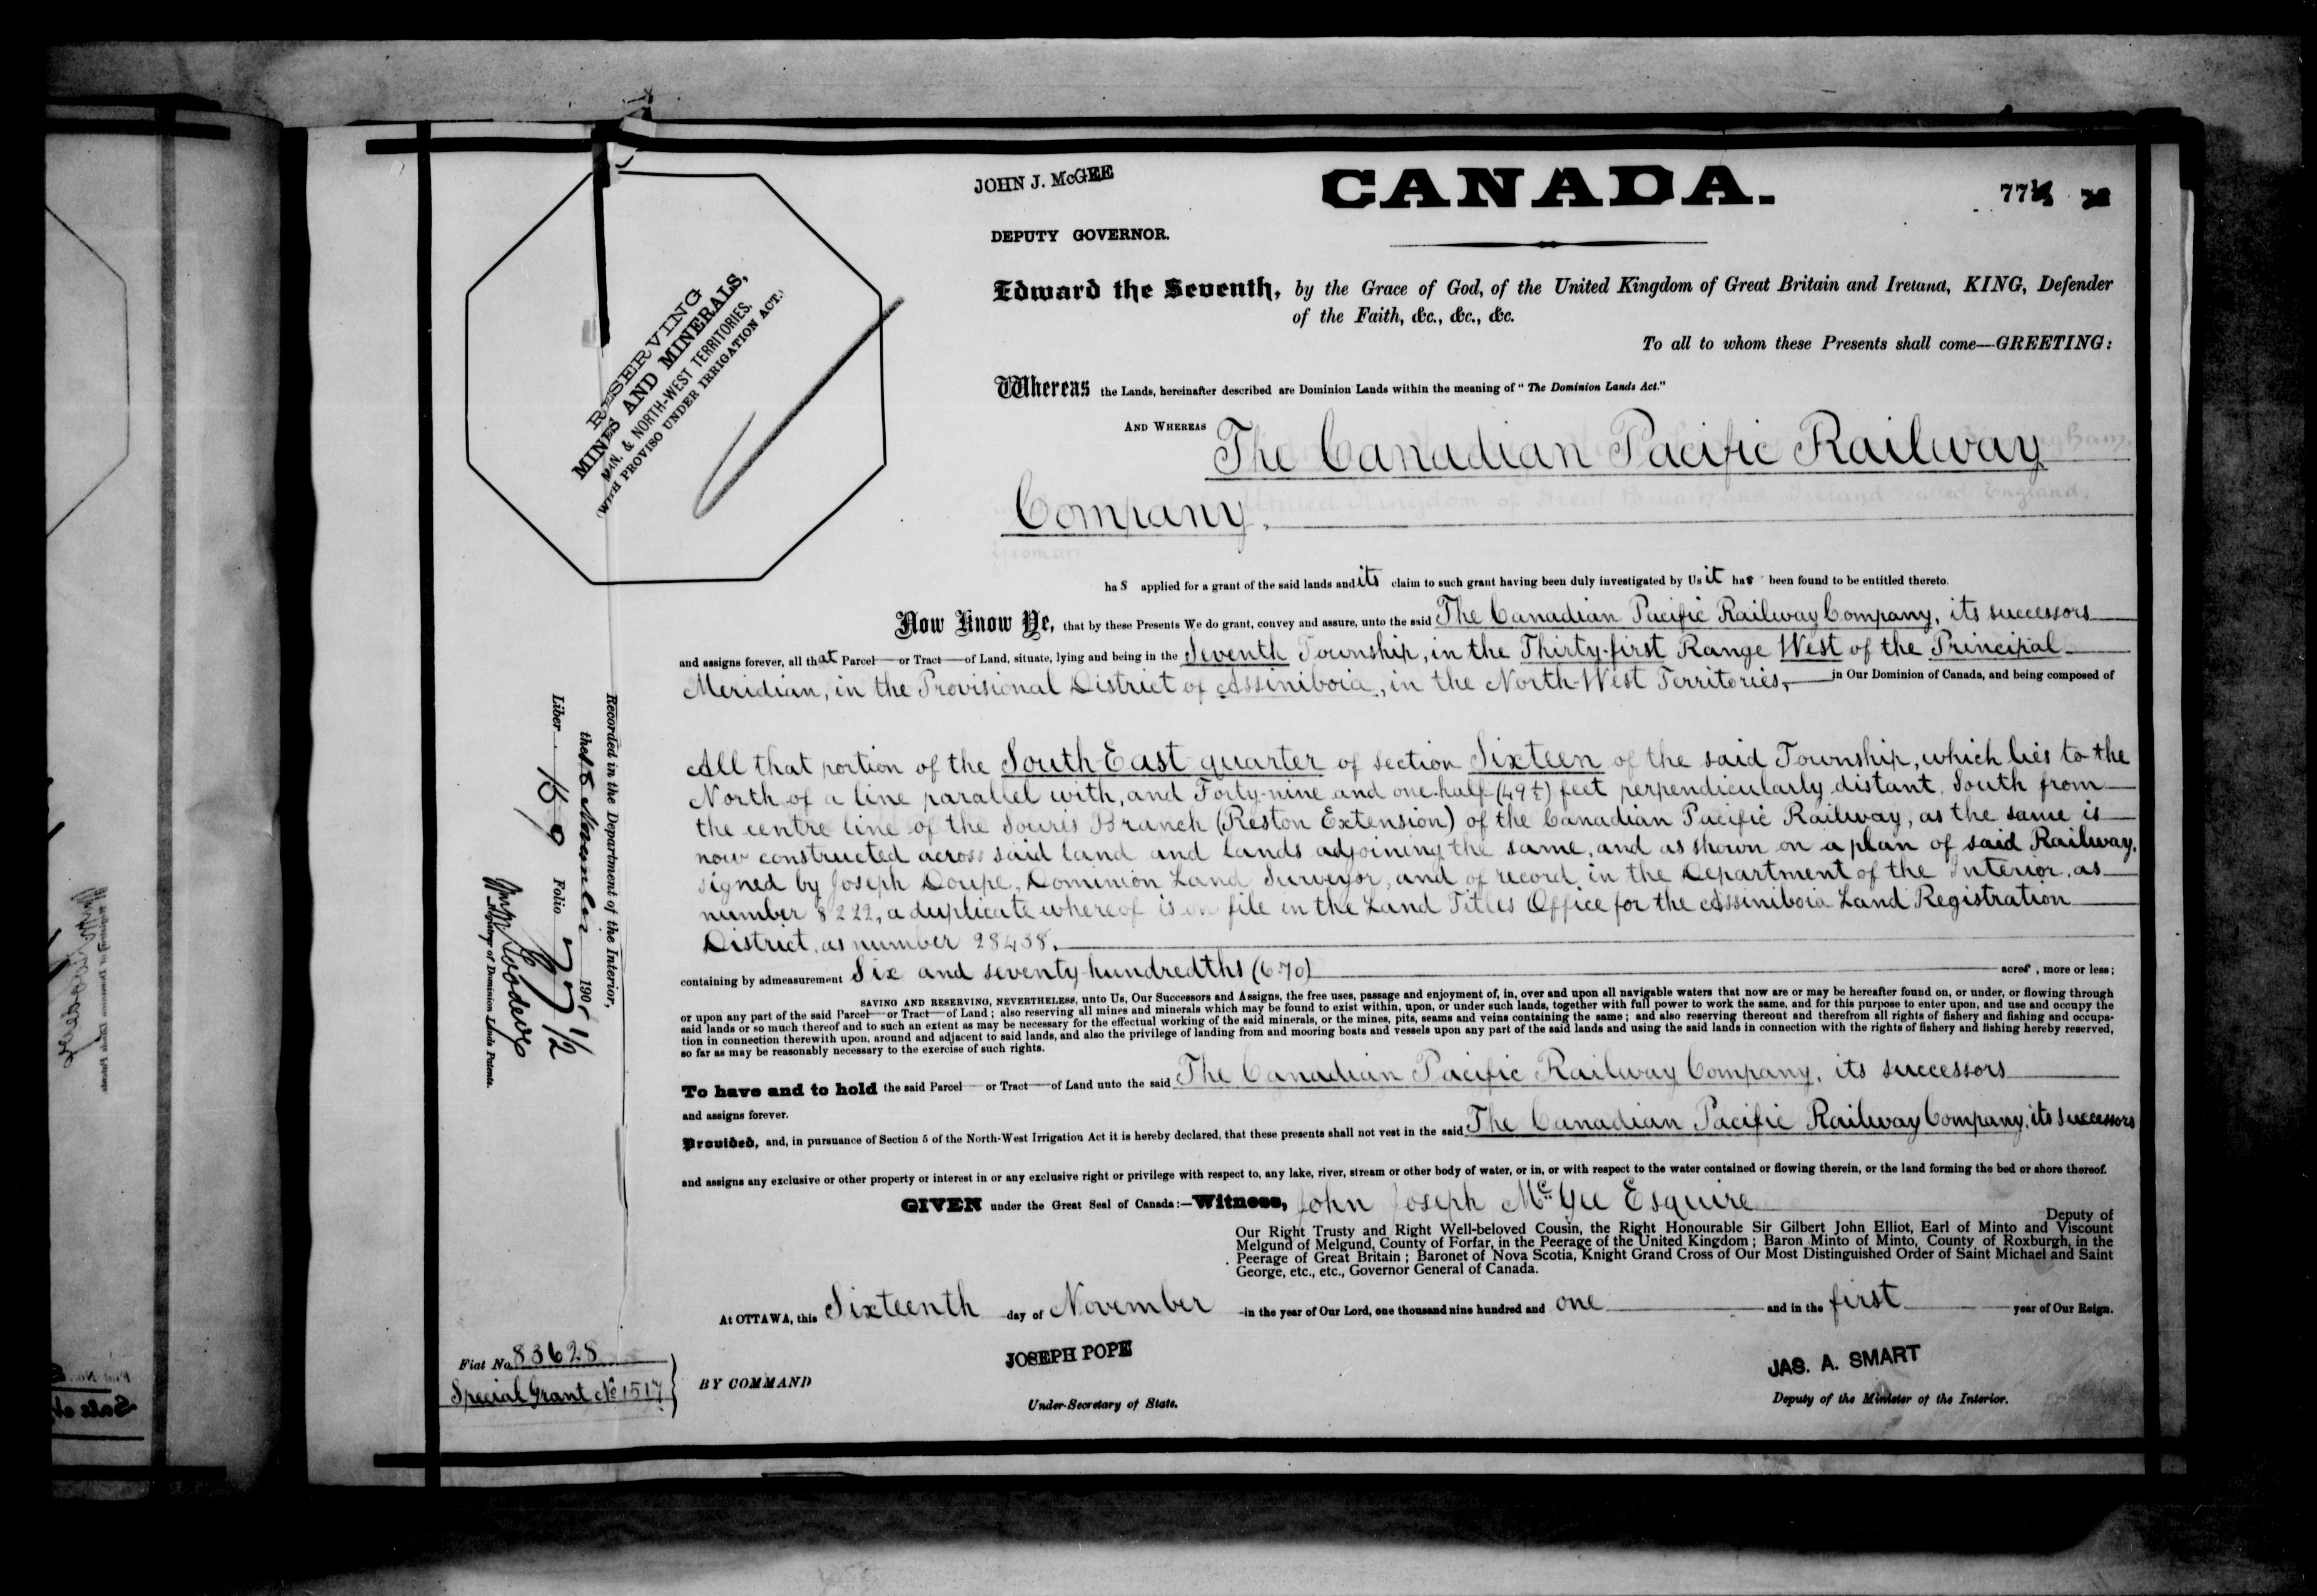 JOHN J. McGEE
DEPUTY GOVERNOR.
CANADA.
77½
RESERVING
MINES AND MINERALS,
MAN. & NORTH-WEST TERRITORIES.
(WITH PROVISO UNDER IRRIGATION ACT.)
Edward the Seventh, by the Grace of God, of the United Kingdom of Great Britain and Ireland, KING, Defender
of the Faith, &c., &c., &c.
To all to whom these Presents shall come—GREETING:
Whereas the Lands, hereinafter described are Dominion Lands within the meaning of "The Dominion Lands Act."
AND WHEREAS The Canadian Pacific Railway
Company,
has applied for a grant of the said lands and its claim to such grant having been duly investigated by Us it has been found to be entitled thereto.
Now Know Ye, that by these Presents We do grant, convey and assure, unto the said The Canadian Pacific Railway Company, its successors
and assigns forever, all that Parcel—or Tract—of Land, situate, lying and being in the Seventh Township, in the Thirty-first Range West of the Principal
Meridian, in the Provisional District of Assiniboia, in the North-West Territories,—in Our Dominion of Canada, and being composed of
All that portion of the South East quarter of section Sixteen of the said Township, which lies to the
North of a line parallel with, and Forty-nine and one-half (49½) feet perpendicularly distant South from
the centre line of the Souris Branch (Reston Extension) of the Canadian Pacific Railway, as the same is
now constructed across said land and lands adjoining the same, and as shown on a plan of said Railway,
signed by Joseph Doupe, Dominion Land Surveyor, and of record in the Department of the Interior, as
number 8222, a duplicate whereof is on file in the Land Titles Office for the Assiniboia Land Registration
District, as number 28438.
containing by admeasurement Six and seventy hundredths (6.70) acres, more or less;
SAVING AND RESERVING, NEVERTHELESS, unto Us, Our Successors and Assigns, the free uses, passage and enjoyment of, in, over and upon all navigable waters that now are or may be hereafter found on, or under, or flowing through
or upon any part of the said Parcel—or Tract—of Land; also reserving all mines and minerals which may be found to exist within, upon, or under such lands, together with full power to work the same, and for this purpose to enter upon, and use and occupy the
said lands or so much thereof and to such an extent as may be necessary for the effectual working of the said minerals, or the mines, pits, seams and veins containing the same; and also reserving thereout and therefrom all rights of fishery and fishing and occupa-
tion in connection therewith upon, around and adjacent to said lands, and also the privilege of landing from and mooring boats and vessels upon any part of the said lands and using the said lands in connection with the rights of fishery and fishing hereby reserved,
so far as may be reasonably necessary to the exercise of such rights.
To have and to hold the said Parcel—or Tract—of Land unto the said The Canadian Pacific Railway Company, its successors
and assigns forever.
Provided, and, in pursuance of Section 5 of the North-West Irrigation Act it is hereby declared, that these presents shall not vest in the said The Canadian Pacific Railway Company, its successors
and assigns any exclusive or other property or interest in or any exclusive right or privilege with respect to, any lake, river, stream or other body of water, or in, or with respect to the water contained or flowing therein, or the land forming the bed or shore thereof.
GIVEN under the Great Seal of Canada:—Witness, John Joseph McGee Esquire
Deputy of
Our Right Trusty and Right Well-beloved Cousin, the Right Honourable Sir Gilbert John Elliot, Earl of Minto and Viscount
Melgund of Melgund, County of Forfar, in the Peerage of the United Kingdom; Baron Minto of Minto, County of Roxburgh, in the
Peerage of Great Britain; Baronet of Nova Scotia, Knight Grand Cross of Our Most Distinguished Order of Saint Michael and Saint
George, etc., etc., Governor General of Canada.
At OTTAWA, this Sixteenth day of November in the year of Our Lord, one thousand nine hundred and one and in the first year of Our Reign.
BY COMMAND
JOSEPH POPE
Under-Secretary of State.
JAS. A. SMART
Deputy of the Minister of the Interior.
Fiat No. 83628
Special Grant No 1517
Recorded in the Department of the Interior,
the 18 November 1901
Liber 159 Folio 77½
Goodeve
Registrar of Dominion Lands Patents.